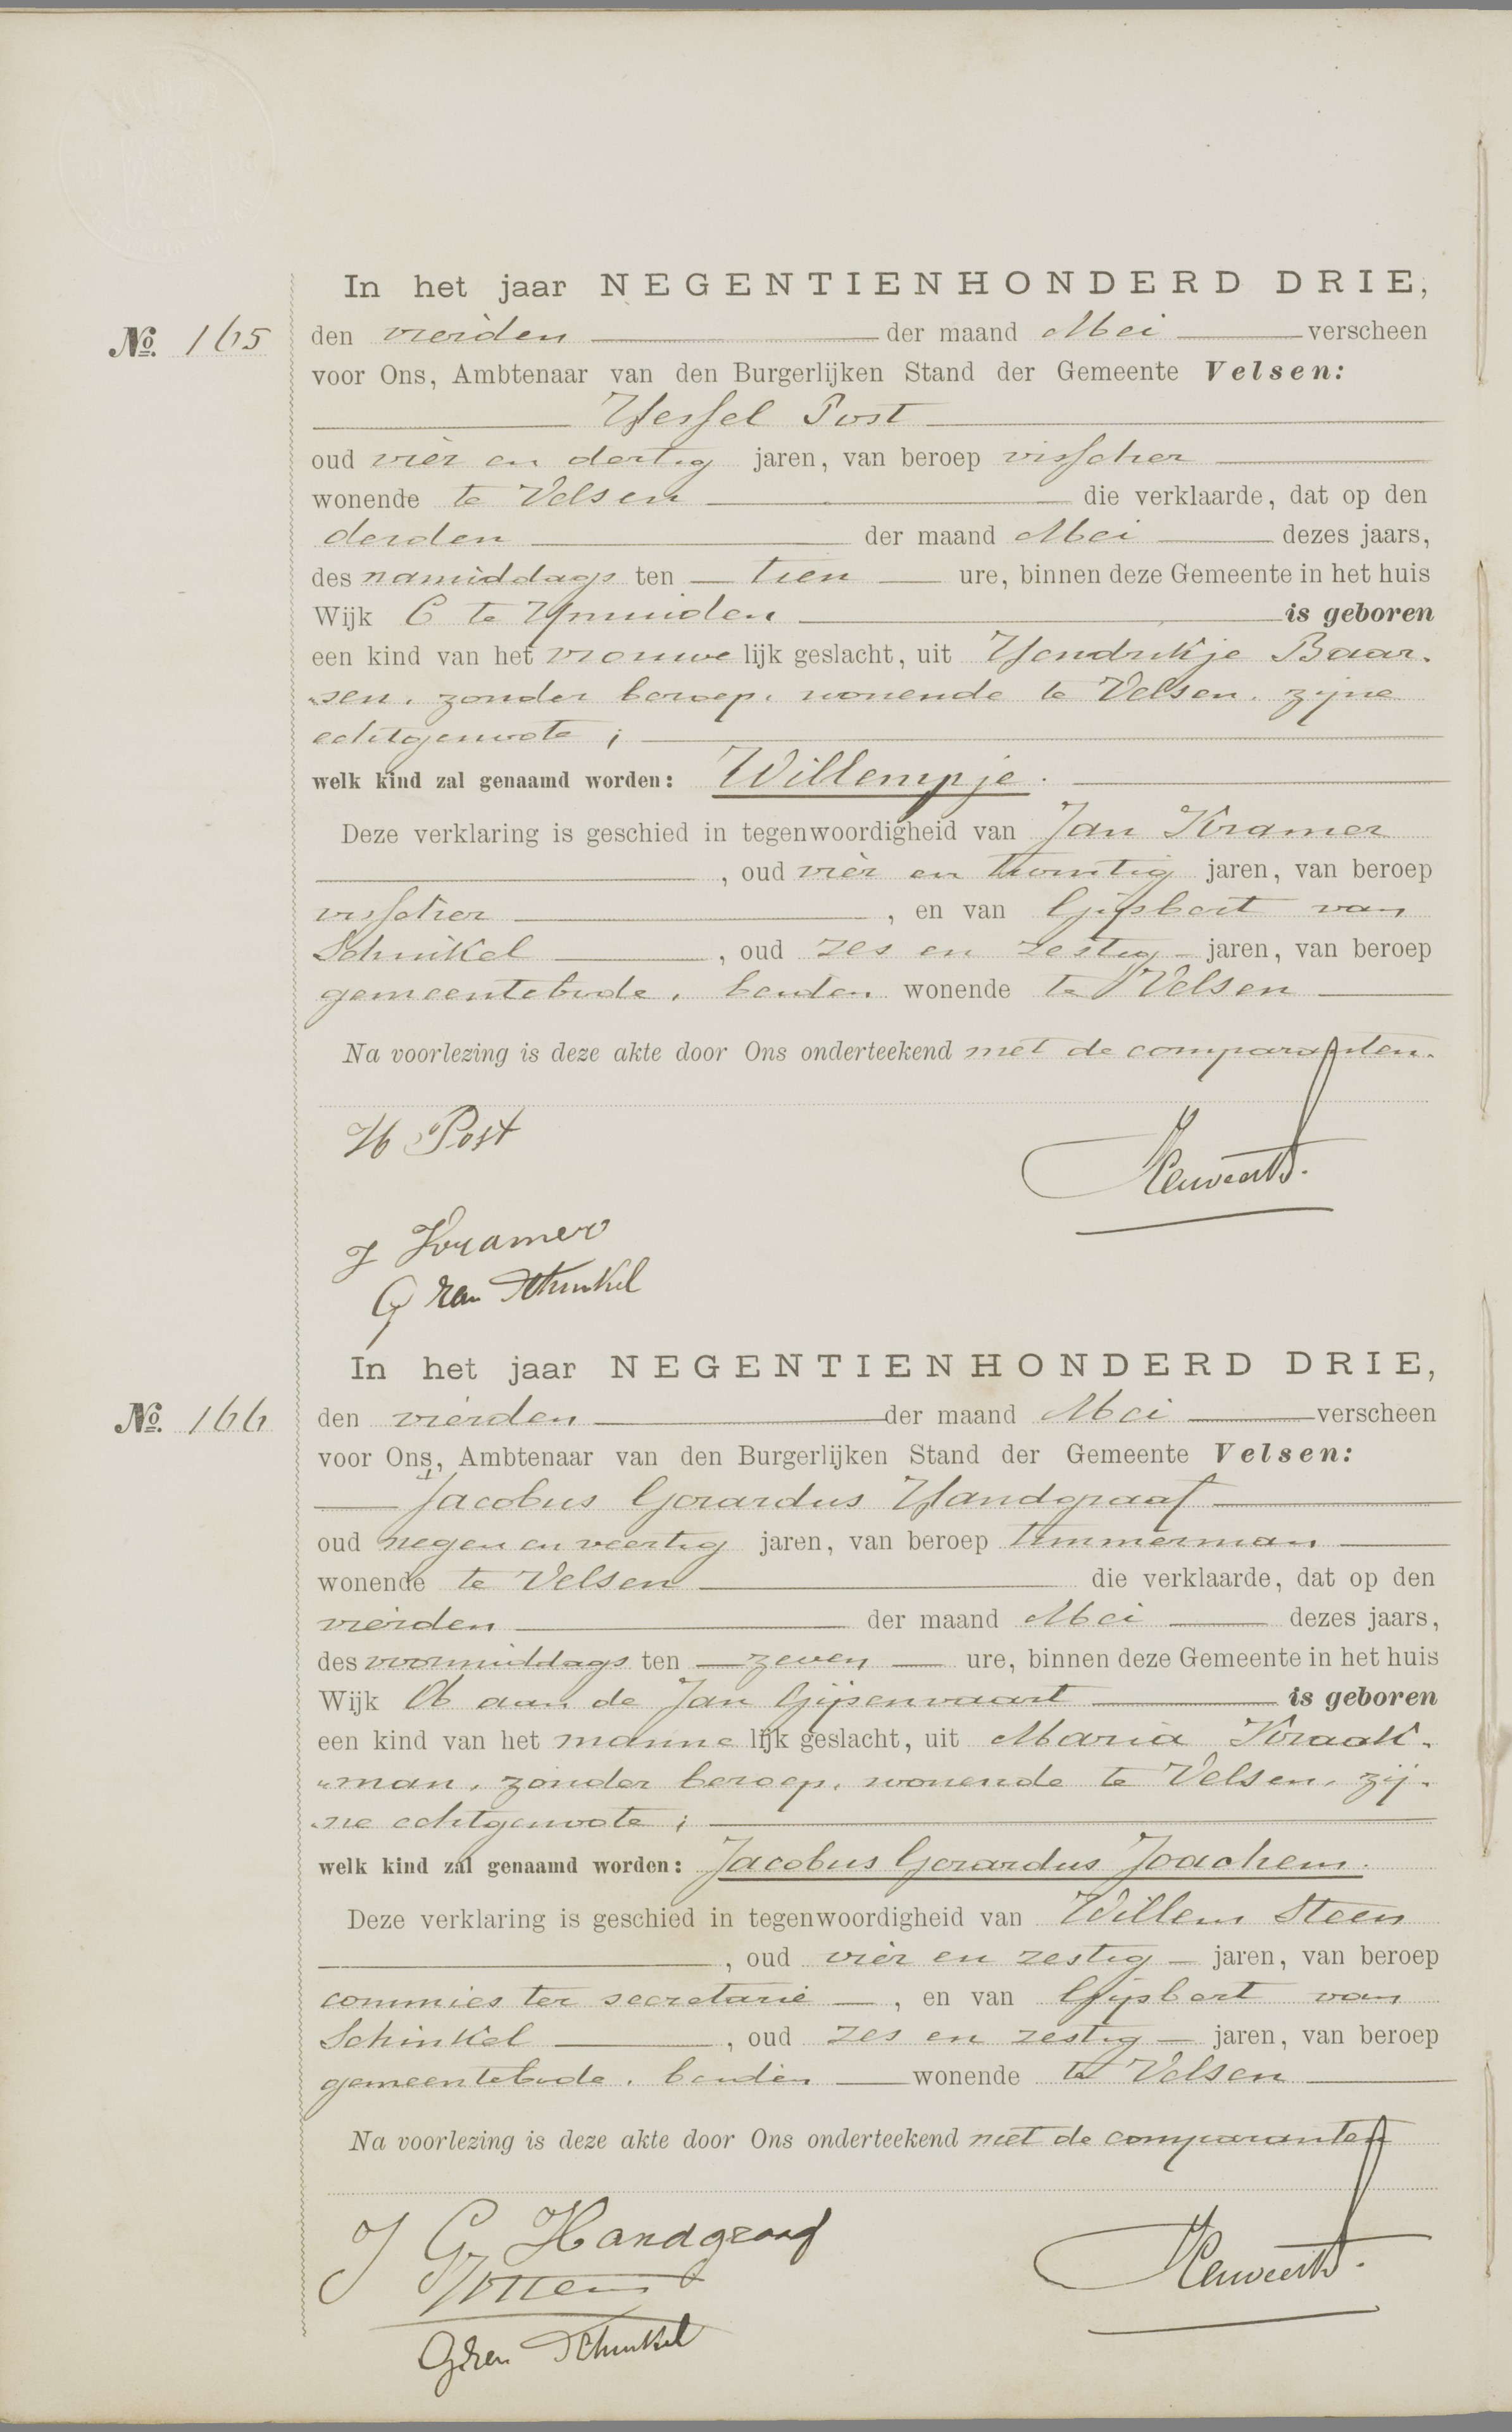 In het jaar NEGENTIENHONDERD DRIE,
No. 165 den vierden der maand Mei verscheen
voor Ons, Ambtenaar van den Burgerlijken Stand der Gemeente Velsen:
Hessel Post
oud vier en dertig jaren, van beroep visscher
wonende te Velsen die verklaarde, dat op den
derden der maand Mei dezes jaars,
des namiddags ten tien ure, binnen deze Gemeente in het huis
Wijk C te Ymuiden is geboren
een kind van het vrouwelijk geslacht, uit Hendrikje Baar-
sen, zonder beroep, wonende te Velsen, zijne
echtgenoote;
welk kind zal genaamd worden: Willempje.
Deze verklaring is geschied in tegenwoordigheid van Jan Kramer
, oud vier en twintig jaren, van beroep
visscher, en van Gijsbert van
Schinkel, oud zes en zestig jaren, van beroep
gemeentebode, beiden wonende te Velsen
Na voorlezing is deze akte door Ons onderteekend met de comparanten.
H Post
J Kramer
G van Schinkel
In het jaar NEGENTIENHONDERD DRIE,
No. 166 den vierden der maand Mei verscheen
voor Ons, Ambtenaar van den Burgerlijken Stand der Gemeente Velsen:
Jacobus Gerardus Handgraaf
oud negen en veertig jaren, van beroep timmerman
wonende te Velsen die verklaarde, dat op den
vierden der maand Mei dezes jaars,
des voormiddags ten zeven ure, binnen deze Gemeente in het huis
Wijk aan de Jan Gijsenvaart is geboren
een kind van het mannelijk geslacht, uit Maria Kraak-
man, zonder beroep, wonende te Velsen, zij-
ne echtgenoote;
welk kind zal genaamd worden: Jacobus Gerardus Joachem.
Deze verklaring is geschied in tegenwoordigheid van Willem Steen
, oud vier en zestig jaren, van beroep
commies ter secretarie, en van Gijsbert van
Schinkel, oud zes en zestig jaren, van beroep
gemeentebode, beiden wonende te Velsen
Na voorlezing is deze akte door Ons onderteekend met de comparanten
J G Handgraaf
G van Schinkel